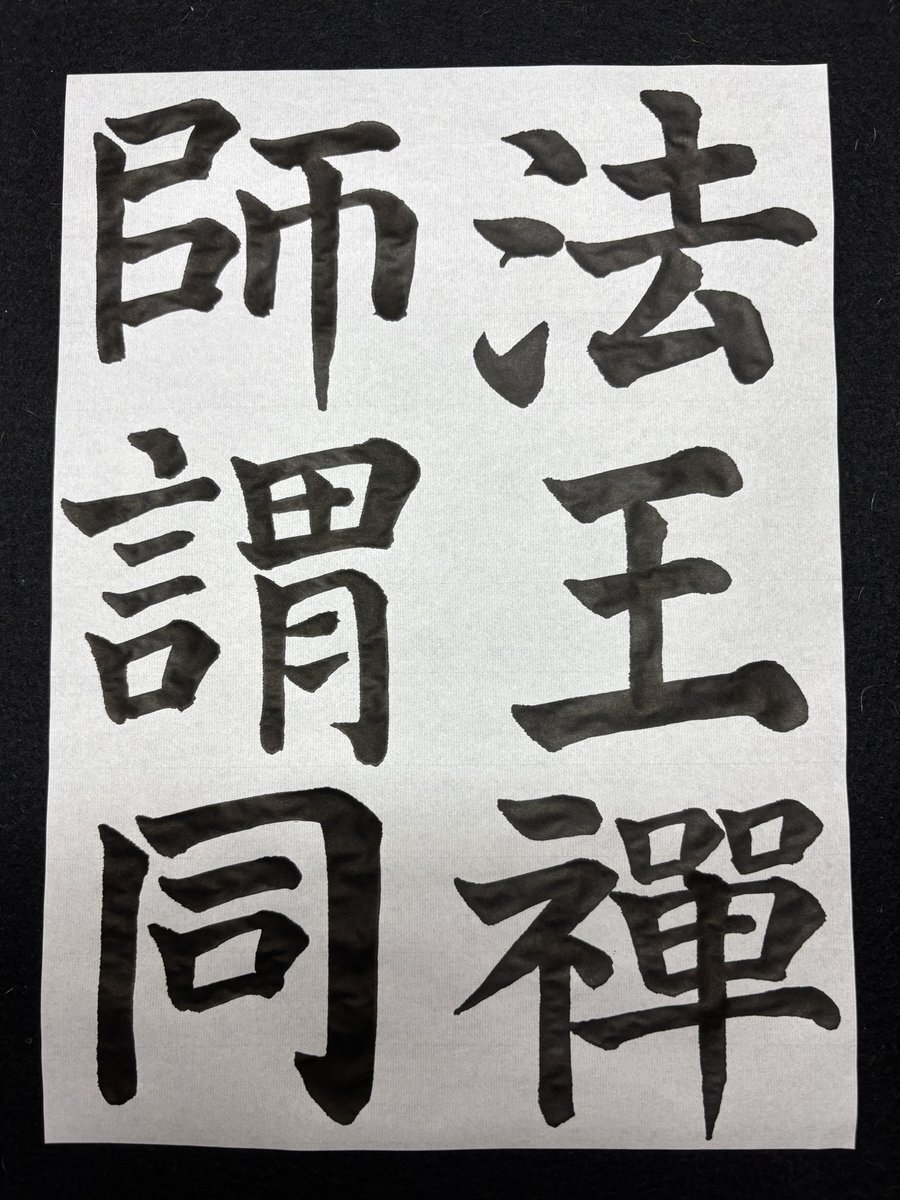 法王禪
師謂同